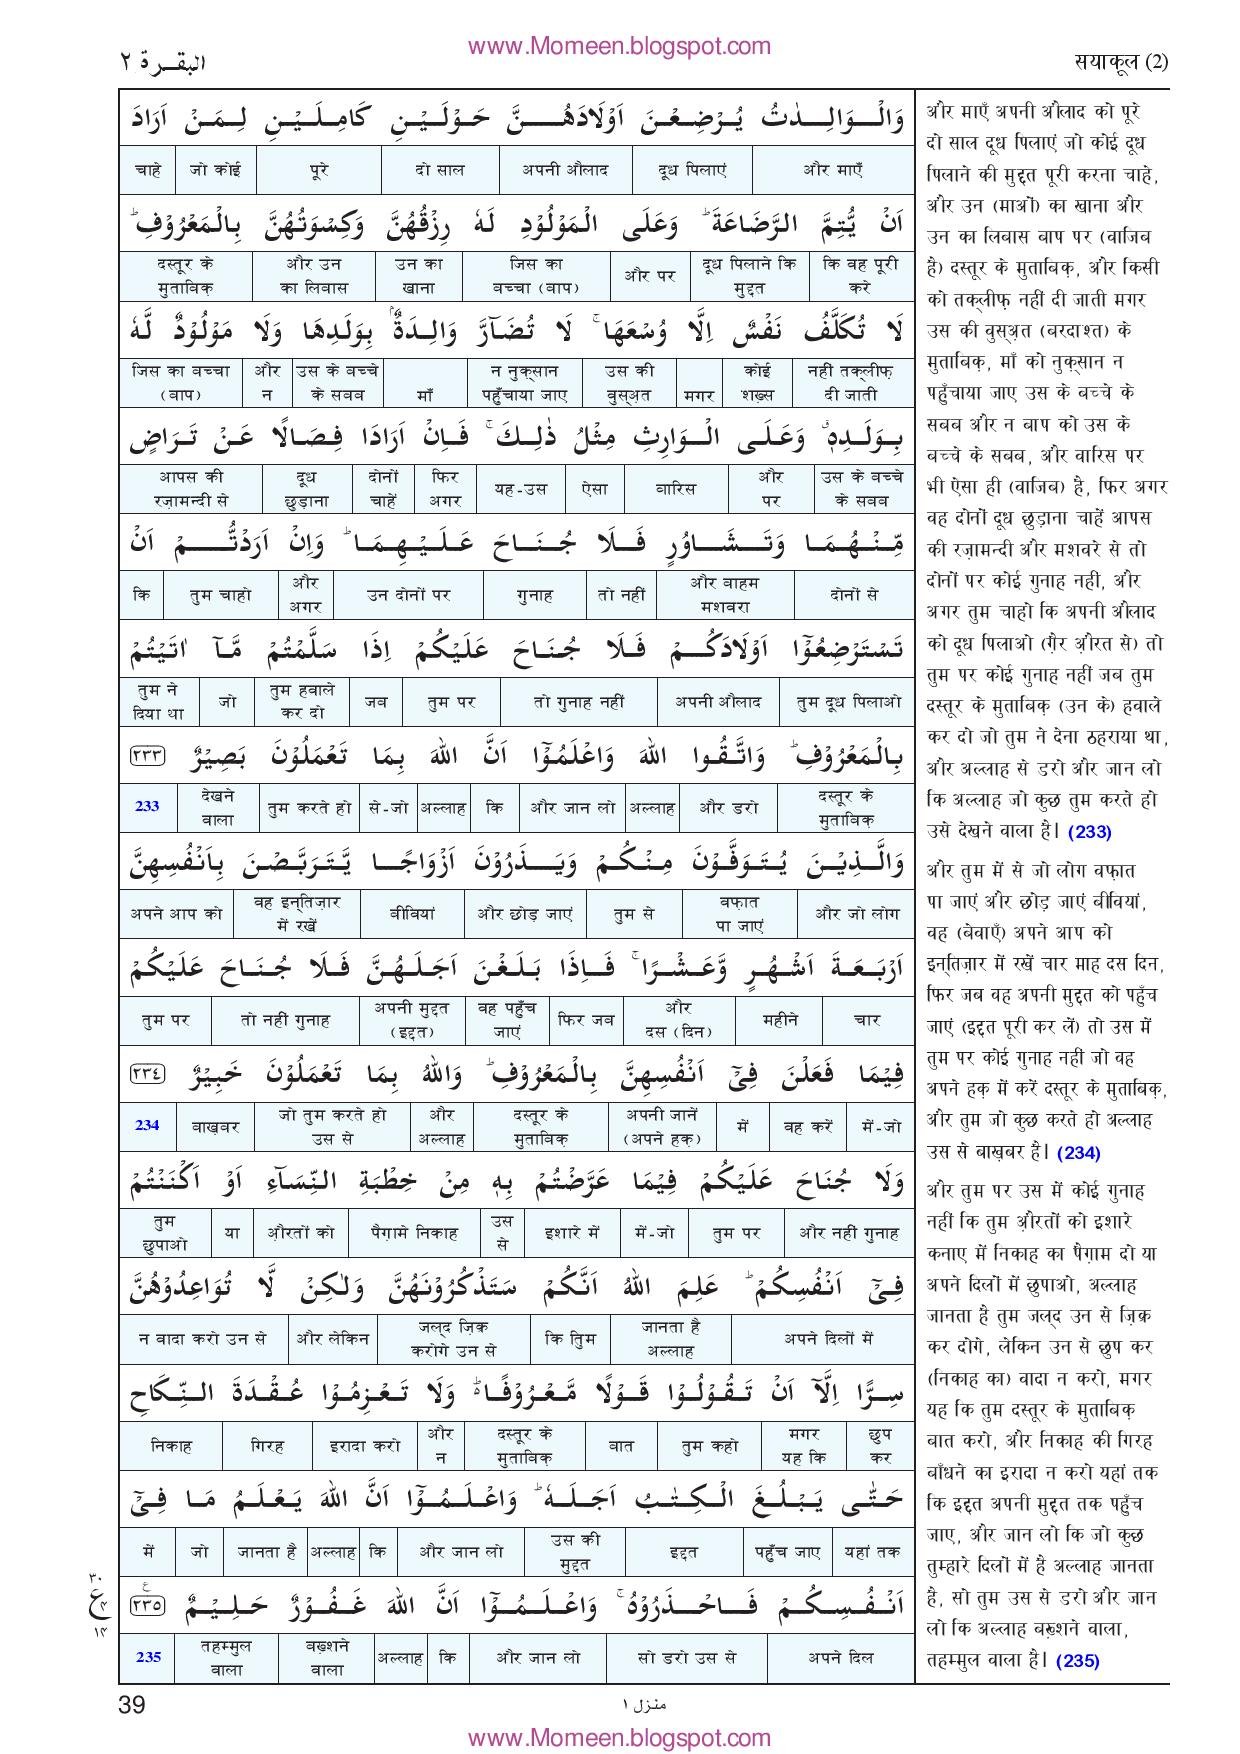 www.Momeen.blogspot.com
البقرة ٢
सयाकूल (2)
وَالْوَالِدٰتُ يُرْضِعْنَ اَوْلَادَهُنَّ حَوْلَيْنِ كَامِلَيْنِ لِمَنْ اَرَادَ
और माएँ दूध पिलाएं अपनी औलाद दो साल पूरे जो कोई चाहे
اَنْ يُّتِمَّ الرَّضَاعَةَ ؕ وَعَلَى الْمَوْلُوْدِ لَهٗ رِزْقُهُنَّ وَكِسْوَتُهُنَّ بِالْمَعْرُوْفِ ؕ
कि वह पूरी करे दूध पिलाने कि मुद्दत और पर जिस का बच्चा (बाप) उन का खाना और उन का लिबास दस्तूर के मुताबिक़
لَا تُكَلَّفُ نَفْسٌ اِلَّا وُسْعَهَا ۚ لَا تُضَآرَّ وَالِدَةٌۢ بِوَلَدِهَا وَلَا مَوْلُوْدٌ لَّهٗ
नहीं तक्लीफ़ दी जाती कोई शख़्स मगर उस की वुस्अ़त न नुक़्सान पहुँचाया जाए माँ उस के बच्चे के सबब और न जिस का बच्चा (बाप)
بِوَلَدِهٖ ۗ وَعَلَى الْوَارِثِ مِثْلُ ذٰلِكَ ۚ فَاِنْ اَرَادَا فِصَالًا عَنْ تَرَاضٍ
उस के बच्चे के सबब और पर वारिस ऐसा यह-उस फिर अगर दोनों चाहें दूध छुड़ाना आपस की रज़ामन्दी से
مِّنْهُمَا وَتَشَاوُرٍ فَلَا جُنَاحَ عَلَيْهِمَا ؕ وَاِنْ اَرَدْتُّمْ اَنْ
दोनों से और बाहम मशवरा तो नहीं गुनाह उन दोनों पर और अगर तुम चाहो कि
تَسْتَرْضِعُوْٓا اَوْلَادَكُمْ فَلَا جُنَاحَ عَلَيْكُمْ اِذَا سَلَّمْتُمْ مَّآ اٰتَيْتُمْ
तुम दूध पिलाओ अपनी औलाद तो गुनाह नहीं तुम पर जब तुम हवाले कर दो जो तुम ने दिया था
بِالْمَعْرُوْفِ ؕ وَاتَّقُوا اللّٰهَ وَاعْلَمُوْٓا اَنَّ اللّٰهَ بِمَا تَعْمَلُوْنَ بَصِيْرٌ ٢٣٣
दस्तूर के मुताबिक़ और डरो अल्लाह और जान लो कि अल्लाह से-जो तुम करते हो देखने वाला 233
وَالَّذِيْنَ يُتَوَفَّوْنَ مِنْكُمْ وَيَذَرُوْنَ اَزْوَاجًا يَّتَرَبَّصْنَ بِاَنْفُسِهِنَّ
और जो लोग वफ़ात पा जाएं तुम से और छोड़ जाएं बीवियां वह इन्तिज़ार में रखें अपने आप को
اَرْبَعَةَ اَشْهُرٍ وَّعَشْرًا ۚ فَاِذَا بَلَغْنَ اَجَلَهُنَّ فَلَا جُنَاحَ عَلَيْكُمْ
चार महीने और दस (दिन) फिर जब वह पहुँच जाएं अपनी मुद्दत (इद्दत) तो नहीं गुनाह तुम पर
فِيْمَا فَعَلْنَ فِيْٓ اَنْفُسِهِنَّ بِالْمَعْرُوْفِ ؕ وَاللّٰهُ بِمَا تَعْمَلُوْنَ خَبِيْرٌ ٢٣٤
में-जो वह करें में अपनी जानें (अपने हक़) दस्तूर के मुताबिक़ और अल्लाह जो तुम करते हो उस से बाख़बर 234
وَلَا جُنَاحَ عَلَيْكُمْ فِيْمَا عَرَّضْتُمْ بِهٖ مِنْ خِطْبَةِ النِّسَآءِ اَوْ اَكْنَنْتُمْ
और नहीं गुनाह तुम पर में-जो इशारे में उस से पैग़ामे निकाह औ़रतों को या तुम छुपाओ
فِيْٓ اَنْفُسِكُمْ ؕ عَلِمَ اللّٰهُ اَنَّكُمْ سَتَذْكُرُوْنَهُنَّ وَلٰكِنْ لَّا تُوَاعِدُوْهُنَّ
अपने दिलों में जानता है अल्लाह कि तुम जल्द ज़िक्र करोगे उन से और लेकिन न वादा करो उन से
سِرًّا اِلَّآ اَنْ تَقُوْلُوْا قَوْلًا مَّعْرُوْفًا ؕ وَلَا تَعْزِمُوْا عُقْدَةَ النِّكَاحِ
छुप कर मगर यह कि तुम कहो बात दस्तूर के मुताबिक़ और न इरादा करो गिरह निकाह
حَتّٰى يَبْلُغَ الْكِتٰبُ اَجَلَهٗ ؕ وَاعْلَمُوْٓا اَنَّ اللّٰهَ يَعْلَمُ مَا فِيْٓ
यहां तक पहुँच जाए इद्दत उस की मुद्दत और जान लो कि अल्लाह जानता है जो में
اَنْفُسِكُمْ فَاحْذَرُوْهُ ۚ وَاعْلَمُوْٓا اَنَّ اللّٰهَ غَفُوْرٌ حَلِيْمٌ ٢٣٥
अपने दिल सो डरो उस से और जान लो कि अल्लाह बख़्शने वाला तहम्मुल वाला 235
٣٠
ع
١٤
और माएँ अपनी औलाद को पूरे
दो साल दूध पिलाएं जो कोई दूध
पिलाने की मुद्दत पूरी करना चाहे,
और उन (माओं) का खाना और
उन का लिबास बाप पर (वाजिब
है) दस्तूर के मुताबिक़, और किसी
को तक्लीफ़ नहीं दी जाती मगर
उस की वुस्अ़त (बरदाश्त) के
मुताबिक़, माँ को नुक़्सान न
पहुँचाया जाए उस के बच्चे के
सबब और न बाप को उस के
बच्चे के सबब, और वारिस पर
भी ऐसा ही (वाजिब) है, फिर अगर
वह दोनों दूध छुड़ाना चाहें आपस
की रज़ामन्दी और मशवरे से तो
दोनों पर कोई गुनाह नहीं, और
अगर तुम चाहो कि अपनी औलाद
को दूध पिलाओ (ग़ैर औ़रत से) तो
तुम पर कोई गुनाह नहीं जब तुम
दस्तूर के मुताबिक़ (उन के) हवाले
कर दो जो तुम ने देना ठहराया था,
और अल्लाह से डरो और जान लो
कि अल्लाह जो कुछ तुम करते हो
उसे देखने वाला है। (233)
और तुम में से जो लोग वफ़ात
पा जाएं और छोड़ जाएं बीवियां,
वह (बेवाएँ) अपने आप को
इन्तिज़ार में रखें चार माह दस दिन,
फिर जब वह अपनी मुद्दत को पहुँच
जाएं (इद्दत पूरी कर लें) तो उस में
तुम पर कोई गुनाह नहीं जो वह
अपने हक़ में करें दस्तूर के मुताबिक़,
और तुम जो कुछ करते हो अल्लाह
उस से बाख़बर है। (234)
और तुम पर उस में कोई गुनाह
नहीं कि तुम औ़रतों को इशारे
कनाए में निकाह का पैग़ाम दो या
अपने दिलों में छुपाओ, अल्लाह
जानता है तुम जल्द उन से ज़िक्र
कर दोगे, लेकिन उन से छुप कर
(निकाह का) वादा न करो, मगर
यह कि तुम दस्तूर के मुताबिक़
बात करो, और निकाह की गिरह
बाँधने का इरादा न करो यहां तक
कि इद्दत अपनी मुद्दत तक पहुँच
जाए, और जान लो कि जो कुछ
तुम्हारे दिलों में है अल्लाह जानता
है, सो तुम उस से डरो और जान
लो कि अल्लाह बख़्शने वाला,
तहम्मुल वाला है। (235)
39
منزل ١
www.Momeen.blogspot.com